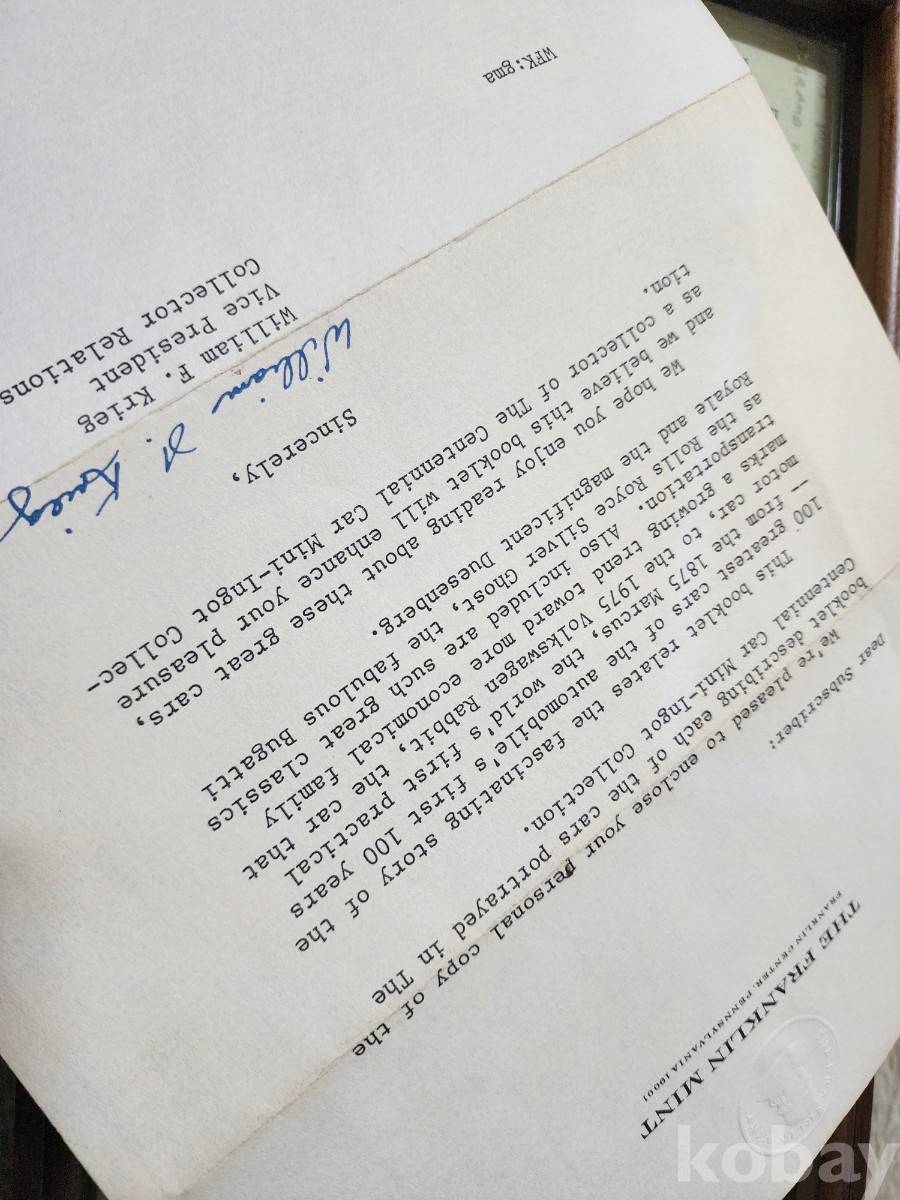 THE FRANKLIN MINT
FRANKLIN CENTER, PENNSYLVANIA 19091
Dear Subscriber:
We're pleased to enclose your personal copy of the
booklet describing each of the cars portrayed in The
Centennial Car Mini-Ingot Collection.
This booklet relates the fascinating story of the
100 greatest cars of the automobile's first 100 years
-- from the 1875 Marcus, the world's first practical
motor car, to the 1975 Volkswagen Rabbit, the car that
marks a growing trend toward more economical family
transportation. Also included are such great classics
as the Rolls Royce Silver Ghost, the fabulous Bugatti
Royale and the magnificent Duesenberg.
We hope you enjoy reading about these great cars,
and we believe this booklet will enhance your pleasure
as a collector of The Centennial Car Mini-Ingot Collec-
tion.
Sincerely,
William F. Krieg
William F. Krieg
Vice President
Collector Relations
WFK:gma
kobay